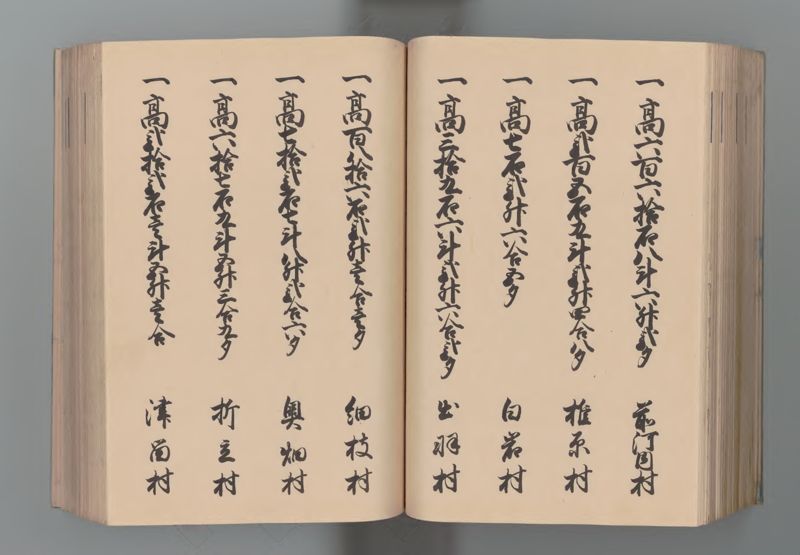 一高六百六拾石八斗六升弐夕 前河内村
一高弐百五石五斗弐升四合八夕 椎原村
一高七石弐升六合五夕 白岩村
一高三拾五石六斗弐升六合弐夕 出羽村
一高百八拾六石弐升壱合壱夕 細枝村
一高七拾弐石七斗八升弐合六夕 奥畑村
一高六拾七石五斗五升三合五夕 折立村
一高弐拾弐石壱斗五升壱合 津留村